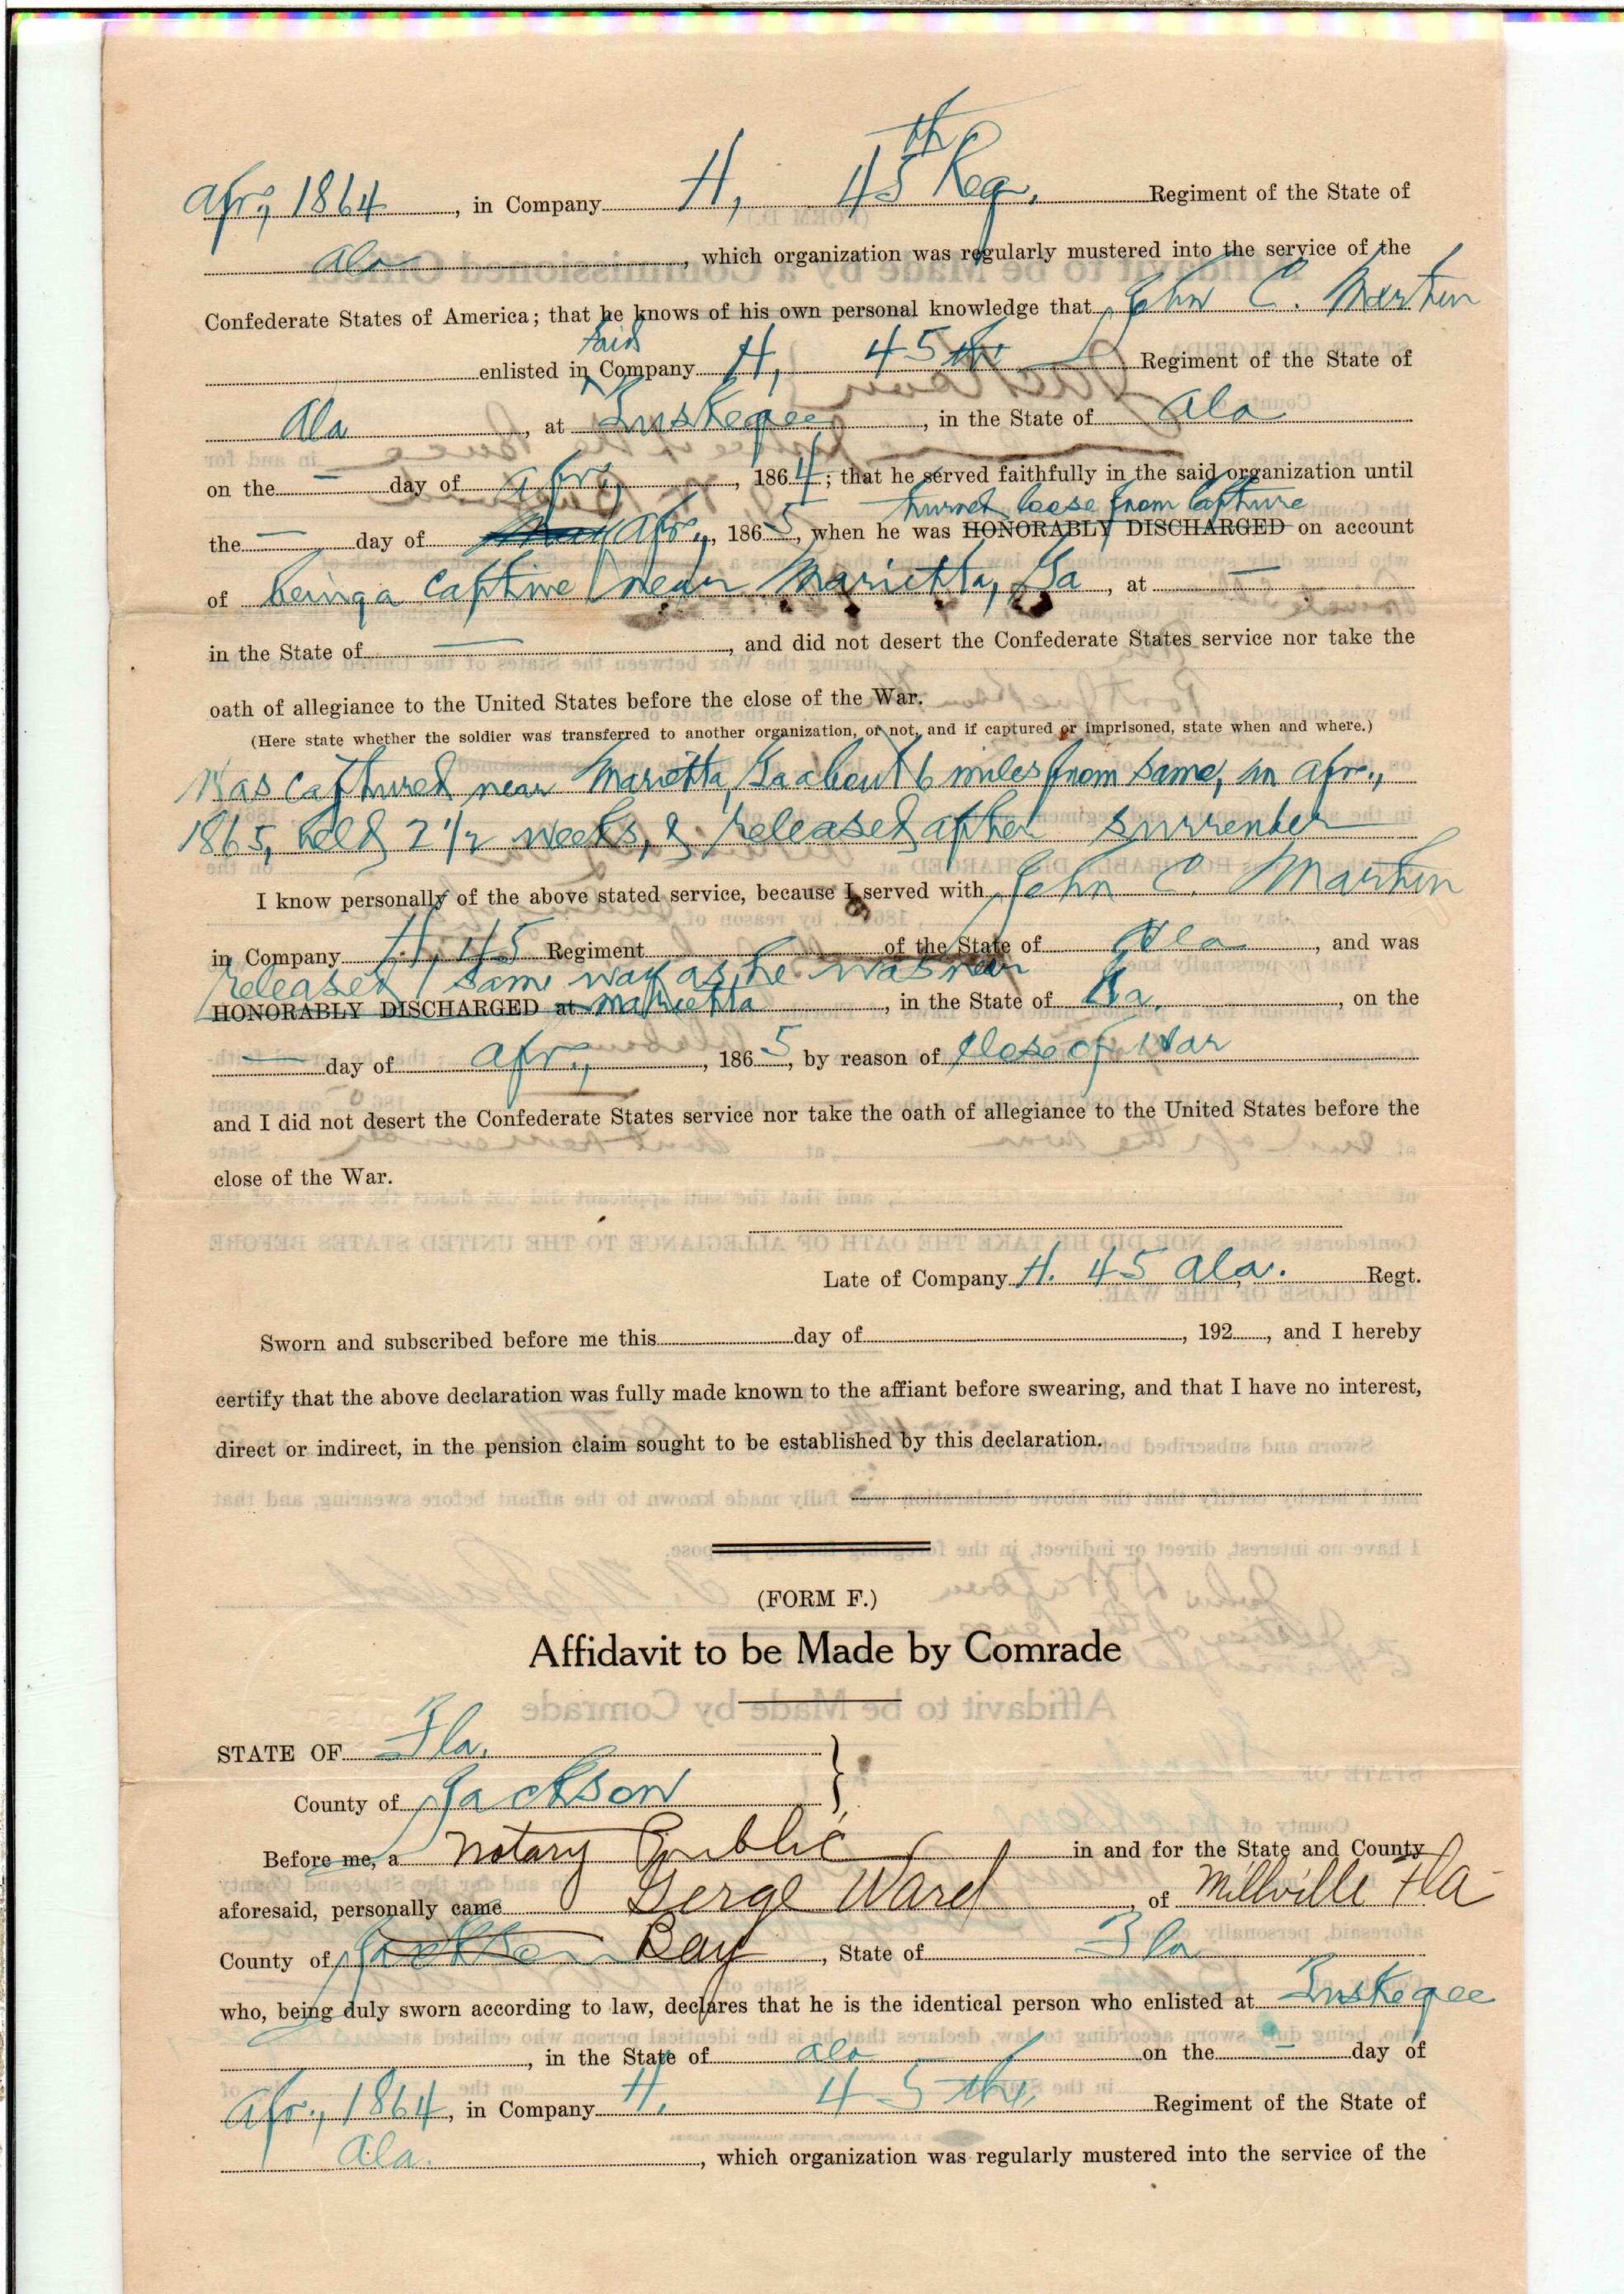 Apr, 1864, in Company H, 45th Reg. Regiment of the State of
Ala, which organization was regularly mustered into the service of the
Confederate States of America; that he knows of his own personal knowledge that John C. Martin
said
enlisted in Company H, 45th Regiment of the State of
Ala, at Tuskegee, in the State of Ala
on the — day of Apr, 1864; that he served faithfully in the said organization until
turned loose from capture
the — day of Apr., 1865, when he was HONORABLY DISCHARGED on account
of being a captive near Marietta, Ga, at —
in the State of —, and did not desert the Confederate States service nor take the
oath of allegiance to the United States before the close of the War.
(Here state whether the soldier was transferred to another organization, or not, and if captured or imprisoned, state when and where.)
Was captured near Marietta, Ga about 6 miles from same, in Apr.,
1865, held 2 1/2 weeks, & released after surrender
I know personally of the above stated service, because I served with John C. Martin
in Company H, 45 Regiment of the State of Ala, and was
released same way as he was near
HONORABLY DISCHARGED at Marietta, in the State of Ga., on the
— day of Apr., 1865, by reason of close of War
and I did not desert the Confederate States service nor take the oath of allegiance to the United States before the
close of the War.
Late of Company H. 45 Ala. Regt.
Sworn and subscribed before me this day of , 192 , and I hereby
certify that the above declaration was fully made known to the affiant before swearing, and that I have no interest,
direct or indirect, in the pension claim sought to be established by this declaration.
(FORM F.)
Affidavit to be Made by Comrade
STATE OF Fla.
County of Jackson
Before me, a Notary Public in and for the State and County
aforesaid, personally came Gerge Ward, of Millville Fla
County of Jackson Bay, State of Fla
who, being duly sworn according to law, declares that he is the identical person who enlisted at Tuskegee
, in the State of Ala on the — day of
Apr., 1864, in Company H. 45th Regiment of the State of
Ala., which organization was regularly mustered into the service of the